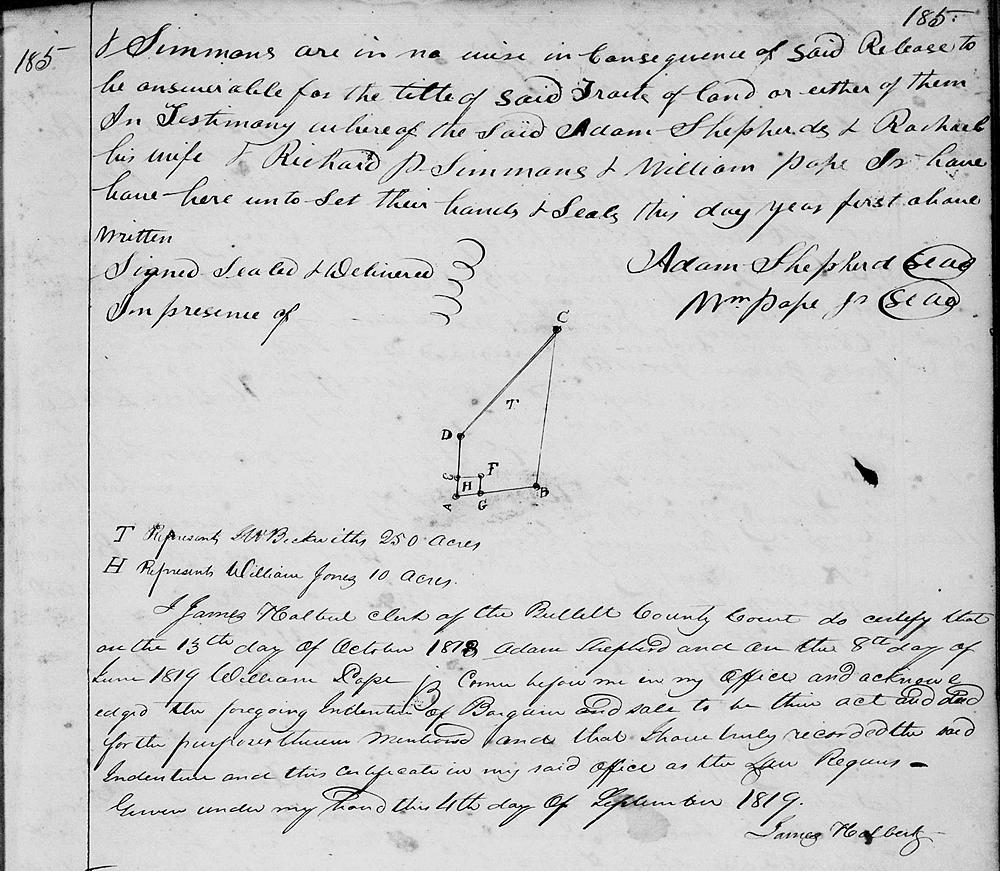 185.
185
& Simmons are in no wise in Consequence of Said Release to
be answerable for the title of Said Tracts of land or either of them
In Testimony whereof the Said Adam Shepherds & Rachael
his wife & Richard P Simmons & William Pope Jr have
have here unto Set their hands & Seals this day year first above
written
Signed Sealed & Delivered
In presence of
Adam Shepherd Seal
Wm Pope Jr Seal
C
T
D
E
F
H
A
G
B
T Represents Beckwiths 250 Acres
H Represents William Jones 10 Acres.
I James Halbert clerk of the Bullitt County Court do certify that
on the 13th day of October 1818 Adam Shepherd and on the 8th day of
June 1819 William Pope Jr Came before me in my Office and acknowl
edged the foregoing Indenture of Bargain and sale to be their act and deed
for the purposes therein Mentioned and that I have truly recorded the said
Indenture and this certificate in my said Office as the Law Requires
Given under my hand this 4th day Of September 1819.
James Halbert